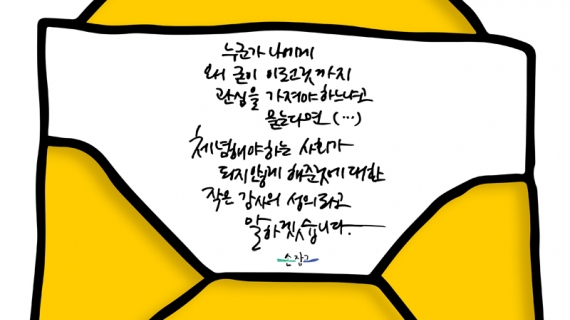 누군가 나에게
왜 굳이 이런것까지
관심을 가져야하느냐고
묻는다면 (…)
체념해야하는 사회가
되지않게 해준것에 대한
작은 감사의 성의라고
말하겠습니다.
손잡고